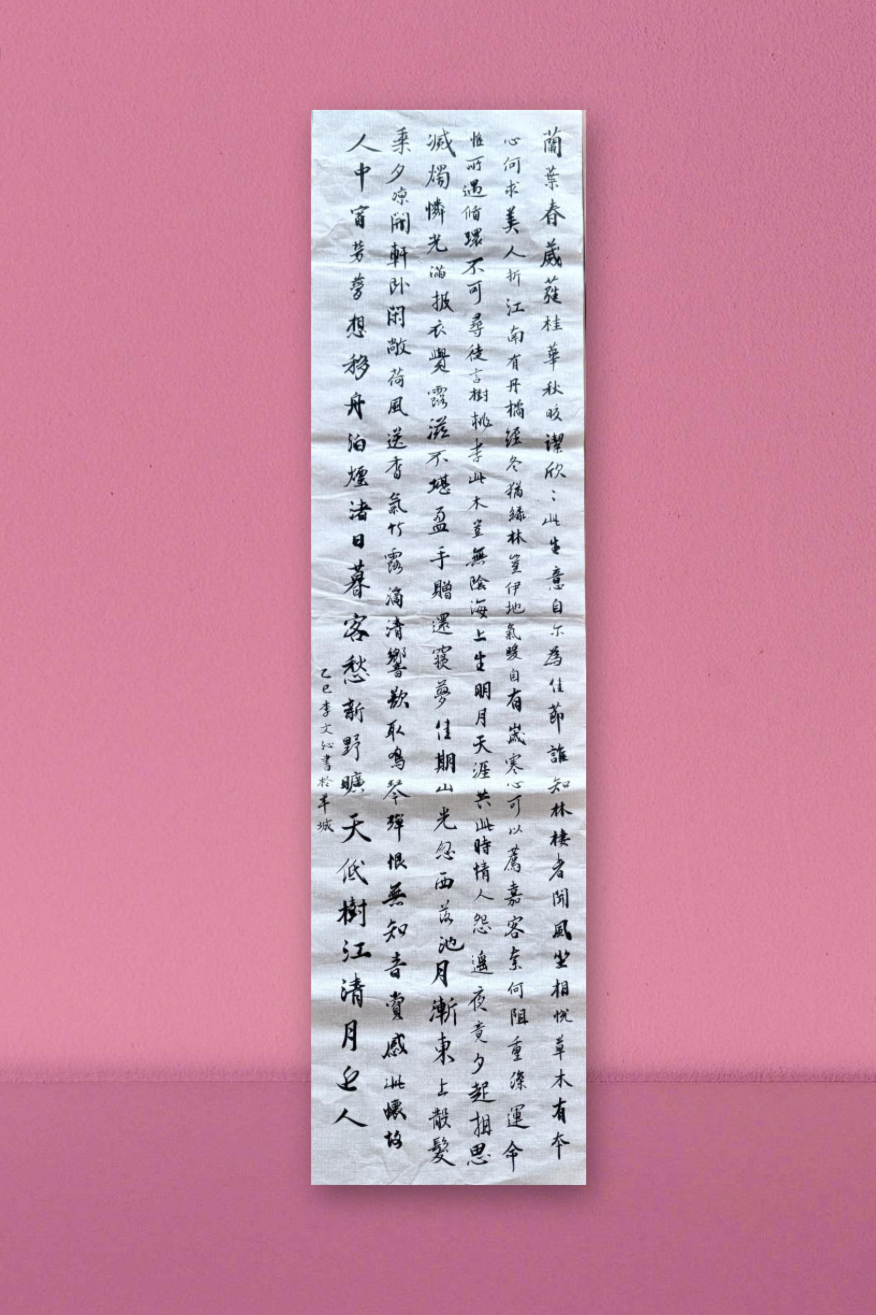 蘭葉春葳蕤桂華秋皎潔欣〻此生意自尔為佳節誰知林棲者聞風坐相悦草木有本
心何求美人折江南有丹橘經冬猶緑林豈伊地氣暖自有歲寒心可以薦嘉客奈何阻重深運命
惟所遇循環不可尋徒言樹桃李此木豈無陰海上生明月天涯共此時情人怨遙夜竟夕起相思
滅燭憐光滿披衣覺露滋不堪盈手贈還寢夢佳期山光忽西落池月漸東上散髮
乘夕凉開軒卧閑敞荷風送香氣竹露滴清響欲取鳴琴彈恨無知音賞感此懷故
人中宵勞夢想移舟泊煙渚日暮客愁新野曠天低樹江清月近人
乙巳李文沁書於羊城